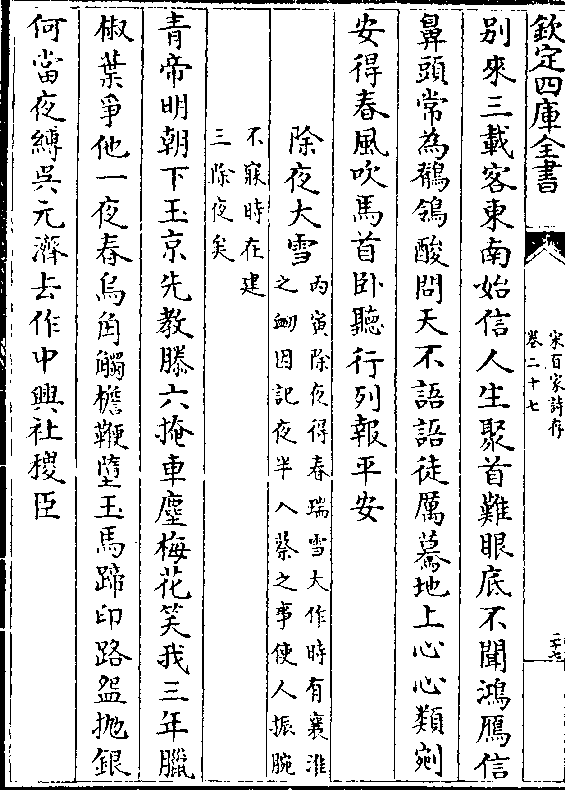 欽定四庫全書
宋百家詩存
卷二十七
二十七
别來三載客東南始信人生聚首難眼底不聞鴻鴈信
鼻頭常為鶺鴒酸問天不語語徒厲驀地上心心類剜
安得春風吹馬首卧聽行列報平安
除夜大雪
丙寅除夜得春瑞雪大作時有襄淮
之衂因記夜半入蔡之事使人振腕
不寐時在建
三除夜矣
青帝明朝下玉京先教滕六掩車塵梅花笑我三年臘
椒葉爭他一夜春烏角觸檐鞭墮玉馬蹄印路盌抛銀
何當夜縛吳元濟去作中興社稷臣